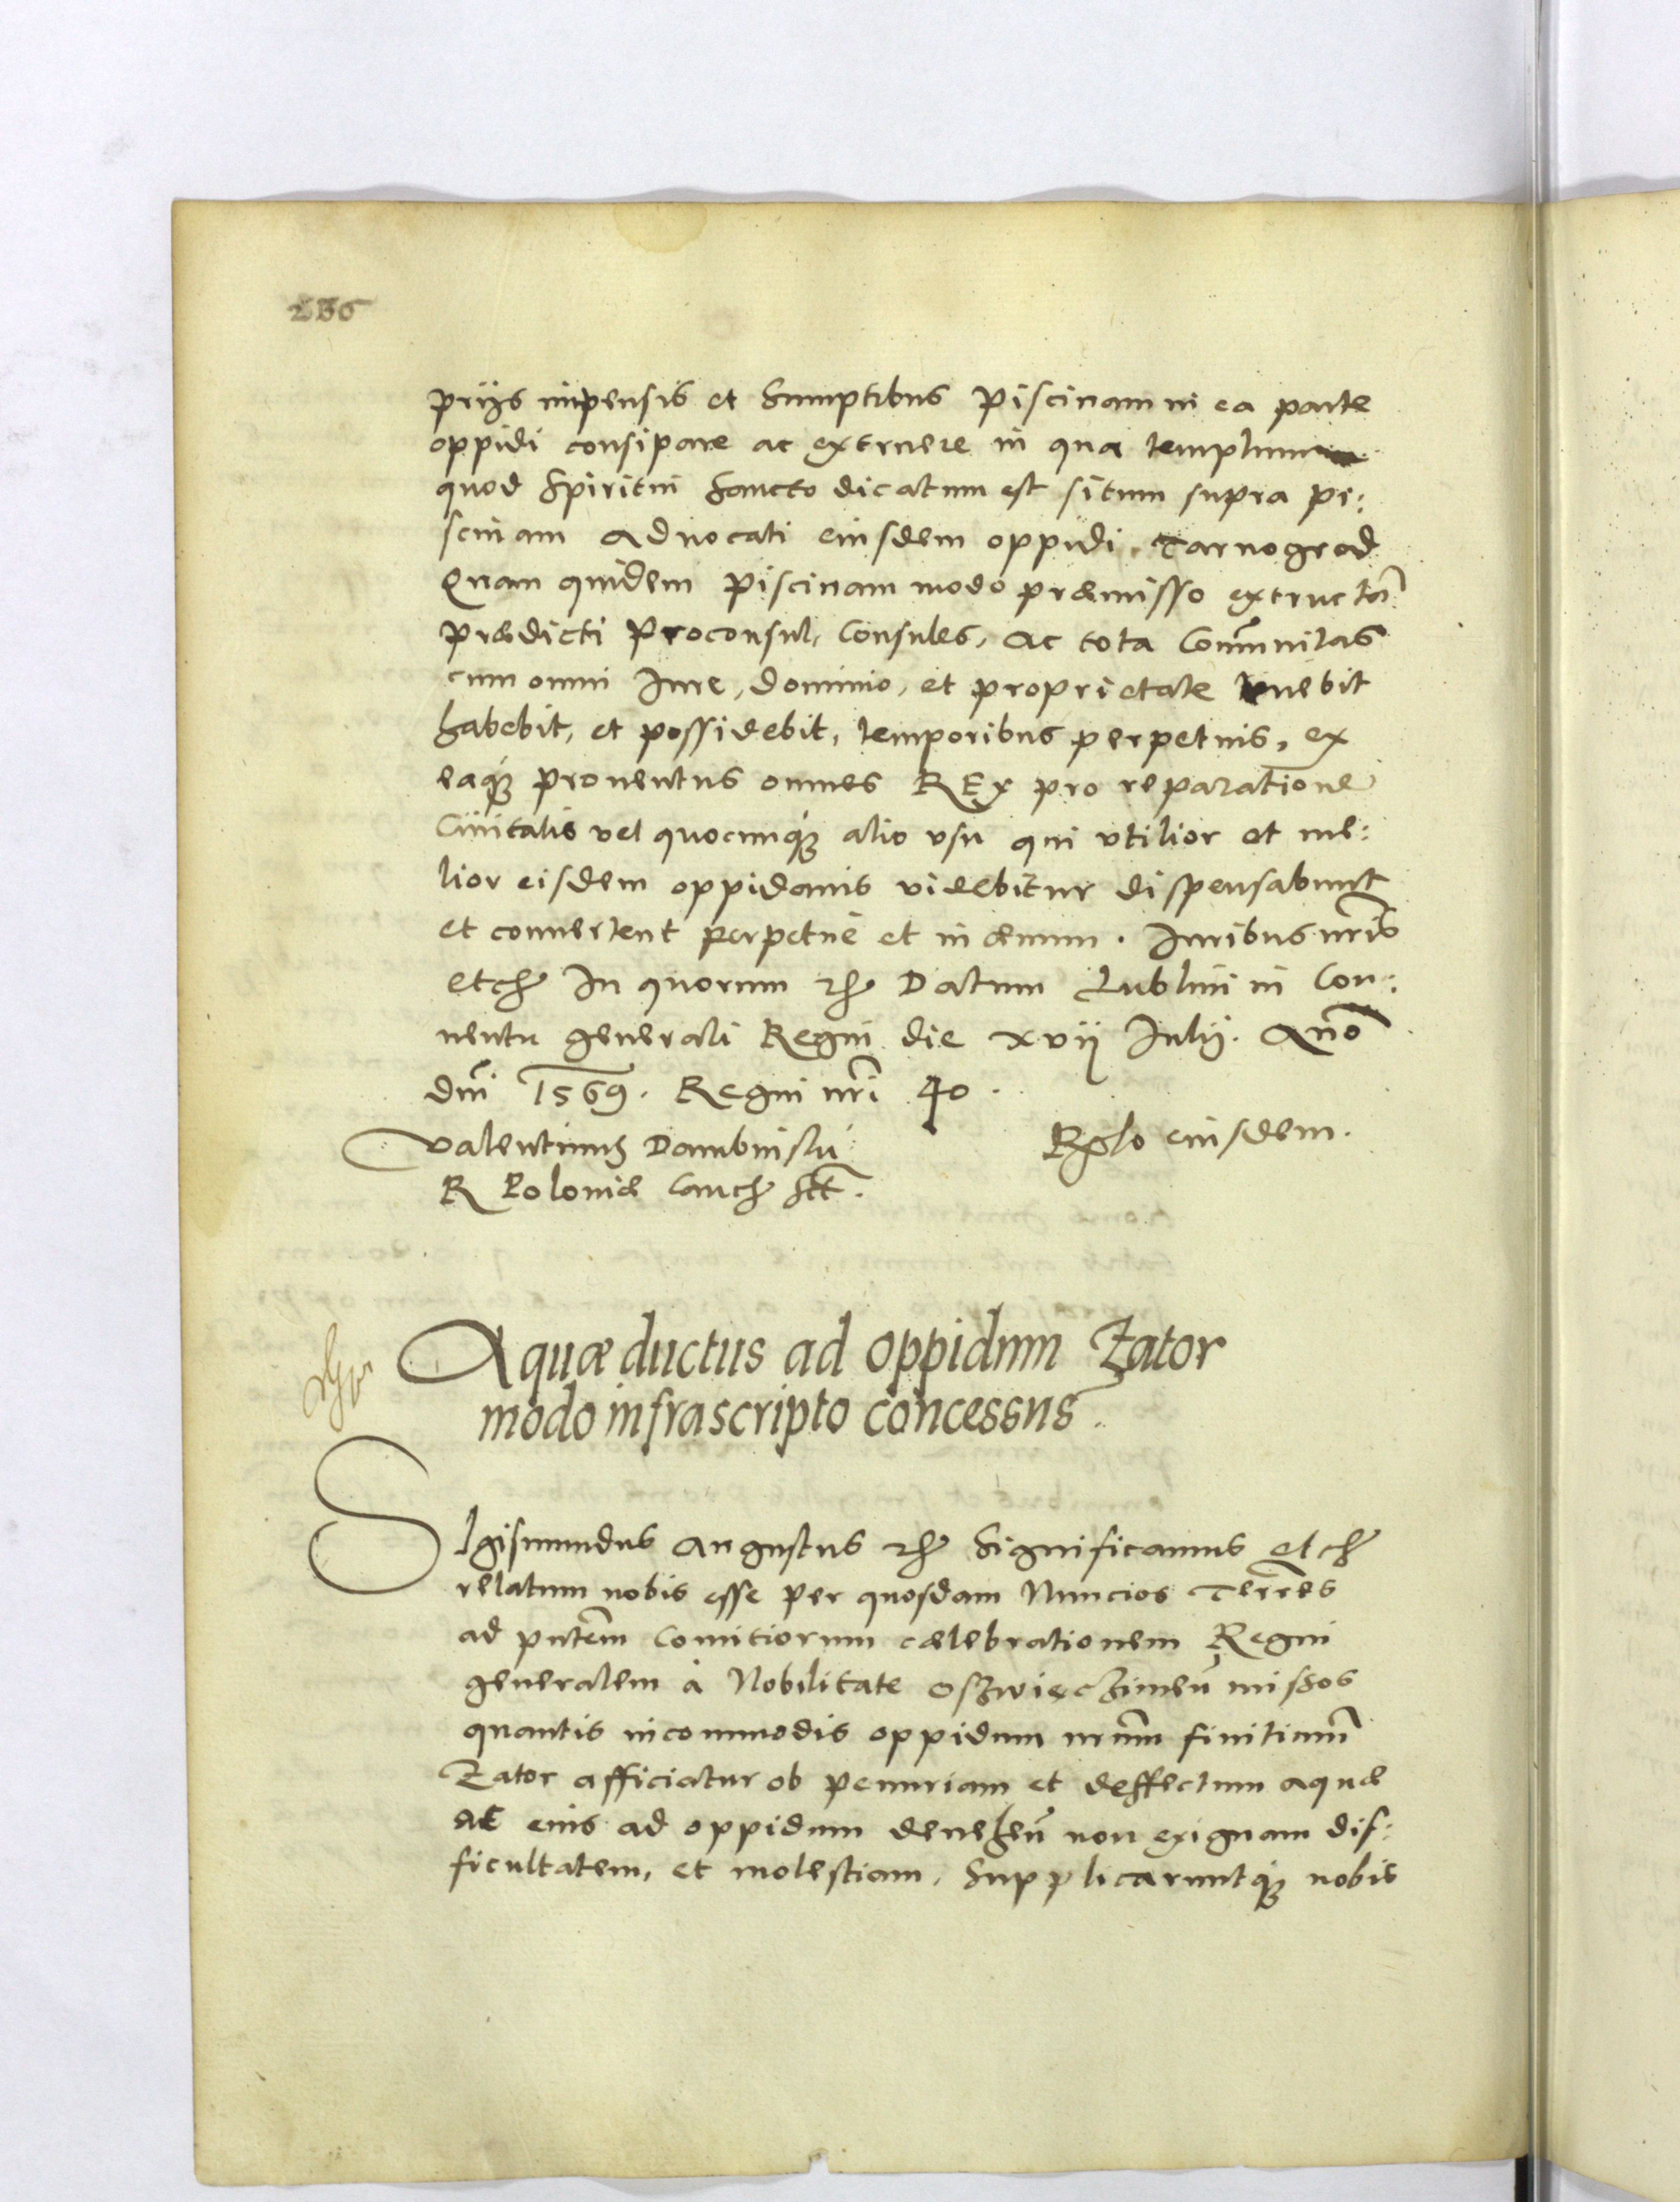 236
prijs impensis et sumptibus piscinam in ea parte
oppidi consipare ac extruere in qua templum
quod Spiritui Sancto dicatum est situm supra pi:
scinam Advocati eiusdem oppidi Tarnogrod
Quam quidem piscinam modo præmisso extructã
prædicti Proconsul, Consules, ac tota Comũnitas
cum omni Iure, dominio, et proprietate tenebit
habebit, et possidebit, temporibus perpetuis, ex
eaq3 proventus omnes REx pro reparatione
Civitatis vel quocunq3 alio vsu qui vtilior et me:
lior eisdem oppidanis videbitur dispensabunt
et convertent perpetuè et in ævum. Iuribus nr̃is
etc̃ In quorum etc̃ Datum Lublini in Con:
ventu generali Regni die xvij Julij. Año
dñi 1569. Regni nr̃i 40.
Valentinus Dambinski
R Poloniæ Canc̃ sst.
Rel̃o eiusdem.
Aquæ ductus ad oppidum Zator
modo infrascripto concessus.
SIgismundus Augustus etc̃ Significamus etc̃
relatum nobis esse per quosdam Nuncios Terr̃es
ad pñtem Comitiorum celebrationem Regni
generalem à Nobilitate Oszwieczimeñ missos
quantis incommodis oppidum nrũm finitimũ
Zator afficiatur ob penuriam et deffectum aquæ
ac eius ad oppidum deveheñ non exiguam dif:
ficultatem, et molestiam, Supplicaruntq3 nobis